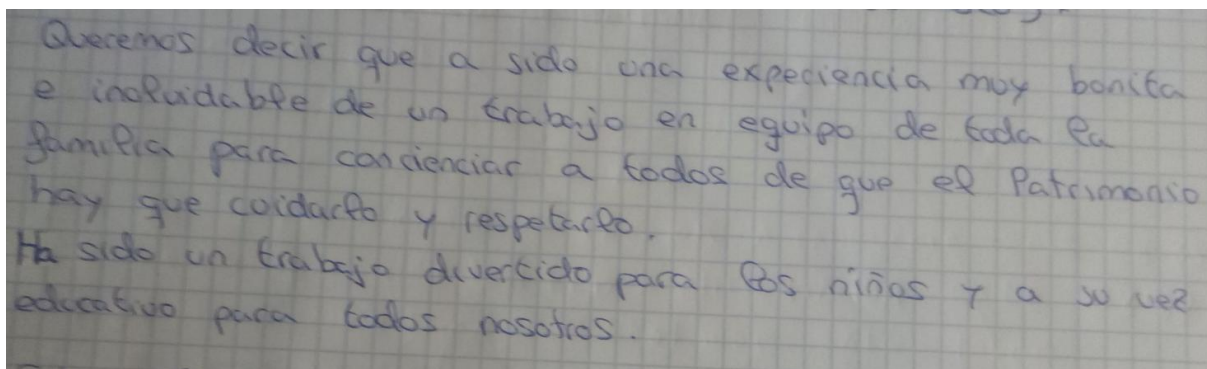 Queremos decir que a sido una experiencia muy bonita
e inolvidable de un trabajo en equipo de toda la
familia para concienciar a todos de que el Patrimonio
hay que cuidarlo y respetarlo.
Ha sido un trabajo divertido para los niños y a su vez
educativo para todos nosotros.